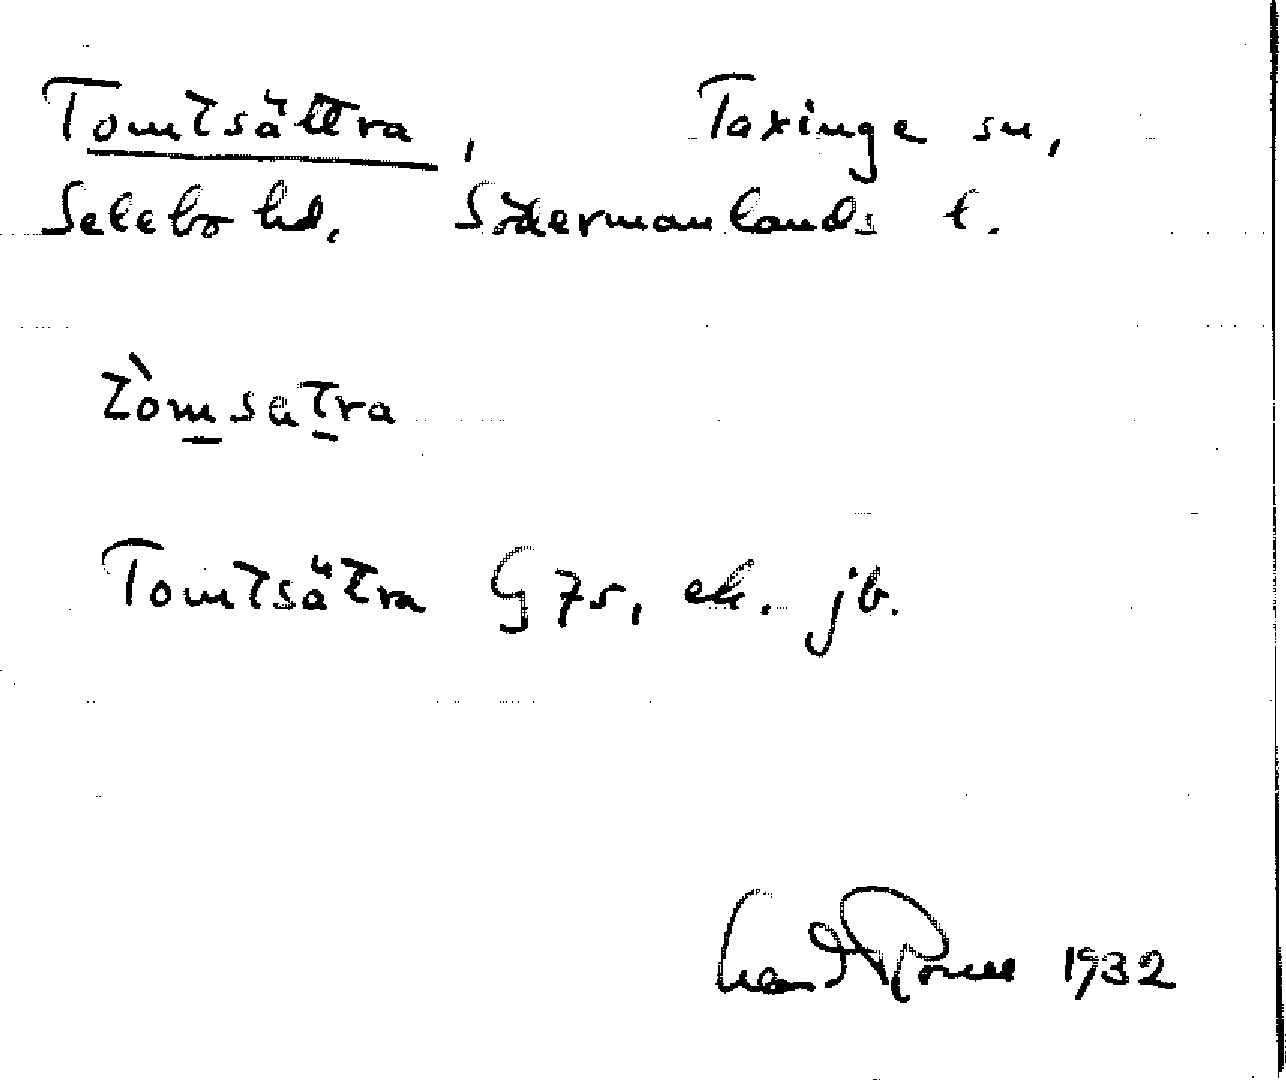 Tomtsättra, Taxinge sn,
Selebo hd. Södermanlands l.
tòmsatra
Tomtsätra G 75, ek. jb.
1932